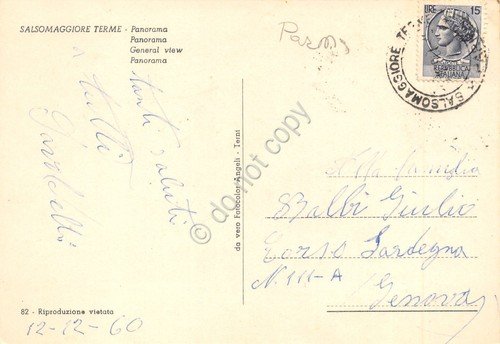 SALSOMAGGIORE TERME - Panorama
Panorama
General view
Panorama
Tanti saluti
a tutti
82 - Riproduzione vietata
12-12-60
da vero Fotocolor Angeli - Terni
do not copy
LIRE 15
REPUBBLICA
ITALIANA
SALSOMAGGIORE TERME
Alla Famiglia
Balbi Giulio
Corso Sardegna
N. 111-A
Genova